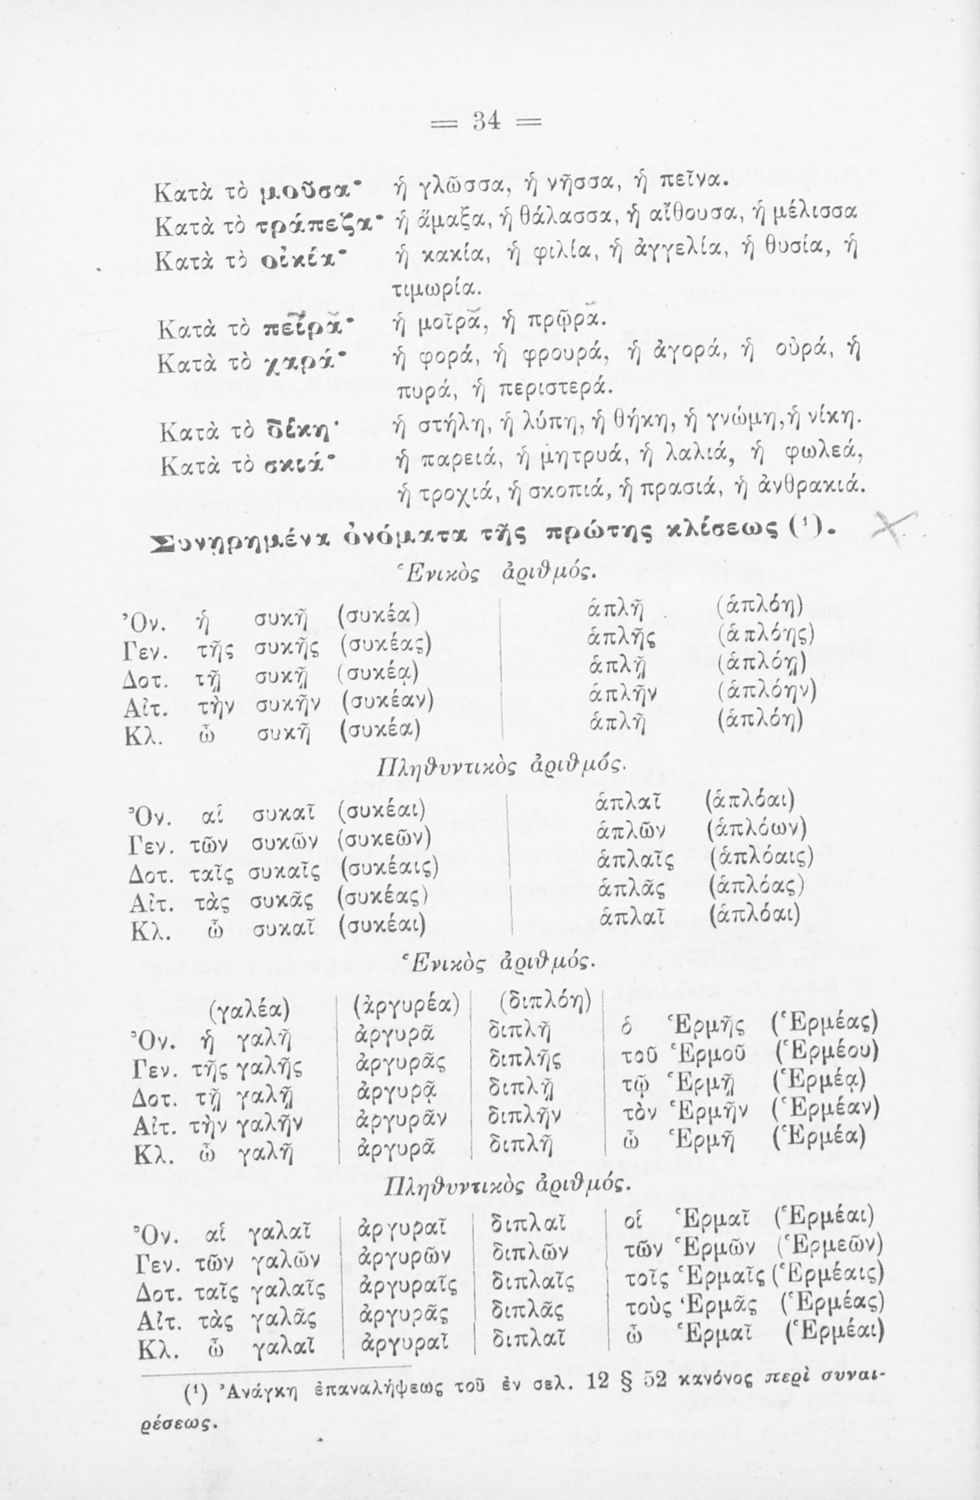 = 34 =
Κατὰ τὸ μοῦσα· ἡ γλῶσσα, ἡ νῆσσα, ἡ πεῖνα.
Κατὰ τὸ τράπεζα· ἡ ἅμαξα, ἡ θάλασσα, ἡ αἴθουσα, ἡ μέλισσα
Κατὰ τὸ οἰκία· ἡ κακία, ἡ φιλία, ἡ ἀγγελία, ἡ θυσία, ἡ
τιμωρία.
Κατὰ τὸ πεῖρα· ἡ μοῖρα, ἡ πρῷρα.
Κατὰ τὸ χαρά· ἡ φορά, ἡ φρουρά, ἡ ἀγορά, ἡ οὐρά, ἡ
πυρά, ἡ περιστερά.
Κατὰ τὸ δίκη· ἡ στήλη, ἡ λύπη, ἡ θήκη, ἡ γνώμη, ἡ νίκη.
Κατὰ τὸ σκιά· ἡ παρειά, ἡ μητρυά, ἡ λαλιά, ἡ φωλεά,
ἡ τροχιά, ἡ σκοπιά, ἡ πρασιά, ἡ ἀνθρακιά.
Συνηρημένα ὀνόματα τῆς πρώτης κλίσεως (¹).
Ἑνικὸς ἀριθμός.
Ὀν. ἡ συκῆ (συκέα) ἁπλῆ (ἁπλόη)
Γεν. τῆς συκῆς (συκέας) ἁπλῆς (ἁπλόης)
Δοτ. τῇ συκῇ (συκέᾳ) ἁπλῇ (ἁπλόῃ)
Αἰτ. τὴν συκῆν (συκέαν) ἁπλῆν (ἁπλόην)
Κλ. ὦ συκῆ (συκέα) ἁπλῆ (ἁπλόη)
Πληθυντικὸς ἀριθμός.
Ὀν. αἱ συκαῖ (συκέαι) ἁπλαῖ (ἁπλόαι)
Γεν. τῶν συκῶν (συκεῶν) ἁπλῶν (ἁπλόων)
Δοτ. ταῖς συκαῖς (συκέαις) ἁπλαῖς (ἁπλόαις)
Αἰτ. τὰς συκᾶς (συκέας) ἁπλᾶς (ἁπλόας)
Κλ. ὦ συκαῖ (συκέαι) ἁπλαῖ (ἁπλόαι)
Ἑνικὸς ἀριθμός.
(γαλέα) (ἀργυρέα) (διπλόη)
Ὀν. ἡ γαλῆ ἀργυρᾶ διπλῆ ὁ Ἑρμῆς (Ἑρμέας)
Γεν. τῆς γαλῆς ἀργυρᾶς διπλῆς τοῦ Ἑρμοῦ (Ἑρμέου)
Δοτ. τῇ γαλῇ ἀργυρᾷ διπλῇ τῷ Ἑρμῇ (Ἑρμέᾳ)
Αἰτ. τὴν γαλῆν ἀργυρᾶν διπλῆν τὸν Ἑρμῆν (Ἑρμέαν)
Κλ. ὦ γαλῆ ἀργυρᾶ διπλῆ ὦ Ἑρμῆ (Ἑρμέα)
Πληθυντικὸς ἀριθμός.
Ὀν. αἱ γαλαῖ ἀργυραῖ διπλαῖ οἱ Ἑρμαῖ (Ἑρμέαι)
Γεν. τῶν γαλῶν ἀργυρῶν διπλῶν τῶν Ἑρμῶν (Ἑρμεῶν)
Δοτ. ταῖς γαλαῖς ἀργυραῖς διπλαῖς τοῖς Ἑρμαῖς (Ἑρμέαις)
Αἰτ. τὰς γαλᾶς ἀργυρᾶς διπλᾶς τοὺς Ἑρμᾶς (Ἑρμέας)
Κλ. ὦ γαλαῖ ἀργυραῖ διπλαῖ ὦ Ἑρμαῖ (Ἑρμέαι)
(¹) Ἀνάγκη ἐπαναλήψεως τοῦ ἐν σελ. 12 § 52 κανόνος περὶ συναι-
ρέσεως.